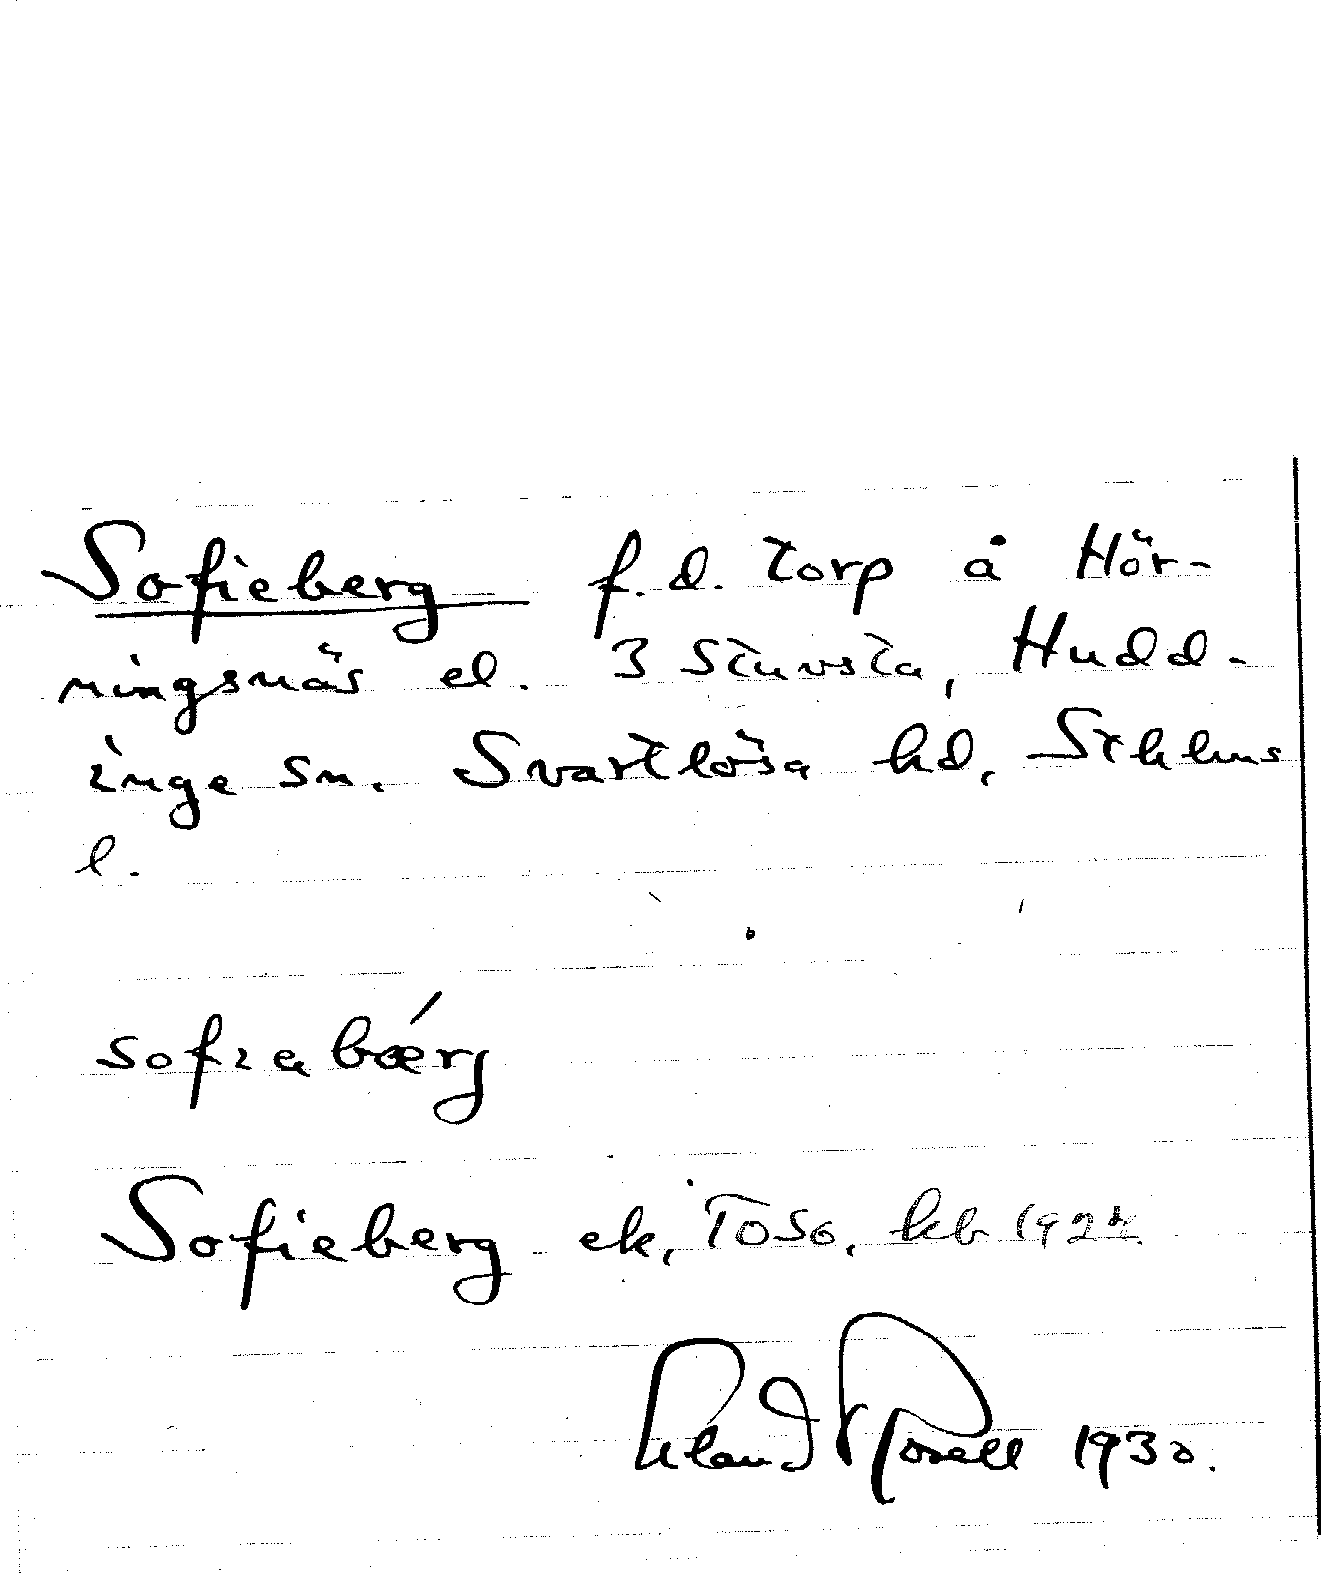 Sofieberg f.d. torp å Hör-
ningsnäs el. 3 Stuvsta, Hudd-
inge sn. Svartlösa hd, Sthlms
l.
sofiabærj
Sofieberg ek, Toso, kb 1924
Rosell 1930.